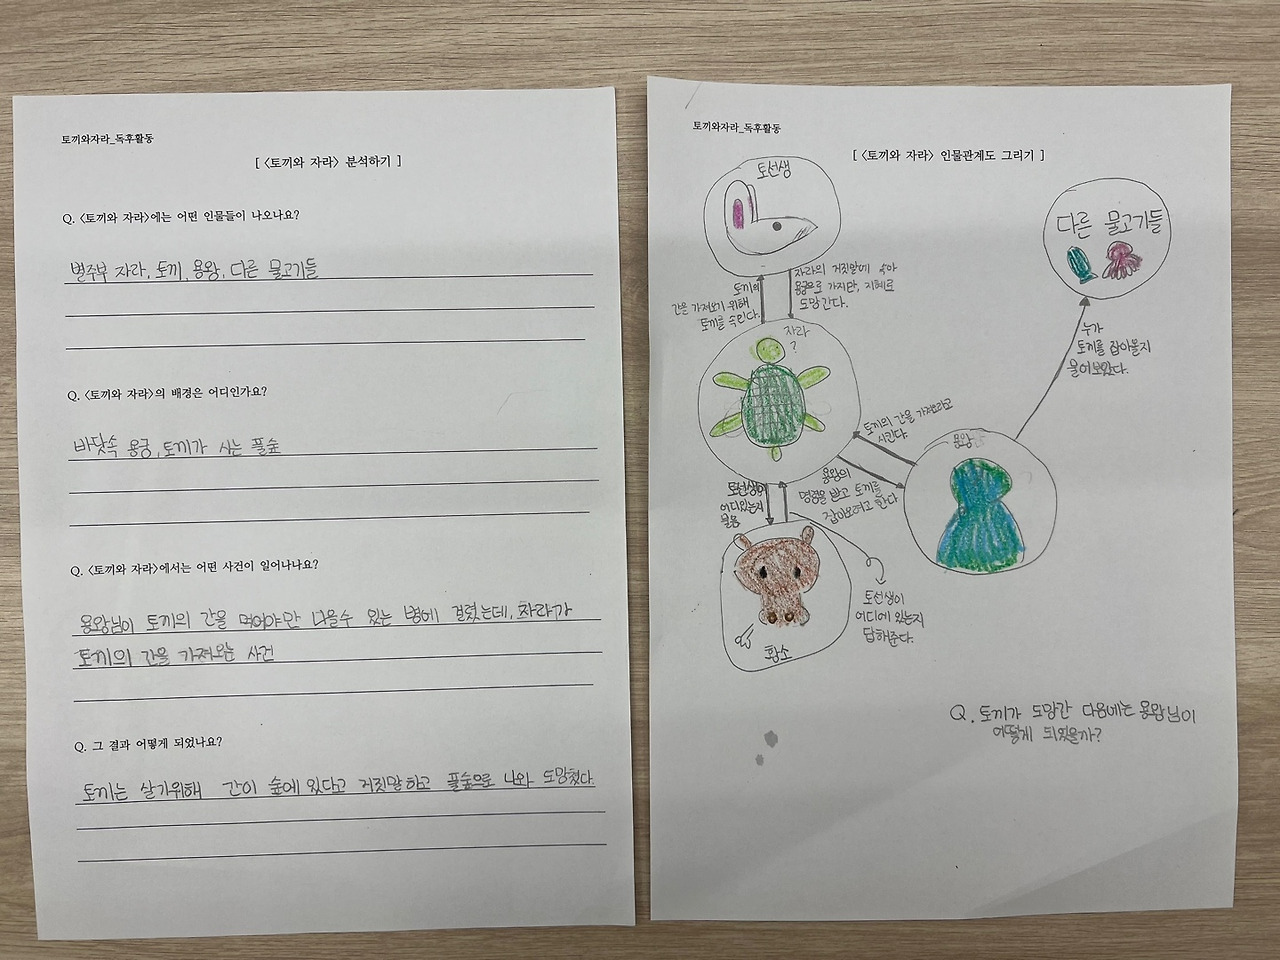 토끼와자라_독후활동
[ <토끼와 자라> 분석하기 ]
Q. <토끼와 자라>에는 어떤 인물들이 나오나요?
별주부 자라, 토끼, 용왕, 다른 물고기들
Q. <토끼와 자라>의 배경은 어디인가요?
바닷속 용궁, 토끼가 사는 풀숲
Q. <토끼와 자라>에서는 어떤 사건이 일어나나요?
용왕님이 토끼의 간을 먹어야만 나을수 있는 병에 걸렸는데, 자라가
토끼의 간을 가져오는 사건
Q. 그 결과 어떻게 되었나요?
토끼는 살기위해 간이 숲에 있다고 거짓말하고 풀숲으로 나와 도망쳤다.
토끼와자라_독후활동
[ <토끼와 자라> 인물관계도 그리기 ]
토선생
다른 물고기들
토끼의
간을 가져오기 위해
토끼를 속인다.
자라의 거짓말에 속아
용궁으로 가지만, 지혜로
도망간다.
자라
?
누가
토끼를 잡아올지
물어보았다.
토끼의 간을 가져오라고
시킨다.
용왕
용왕의
명령을 받고 토끼를
잡아오려고 한다
토선생이
어디있는지
물음
황소
토선생이
어디에 있는지
답해준다.
Q. 토끼가 도망간 다음에는 용왕님이
어떻게 되었을까?